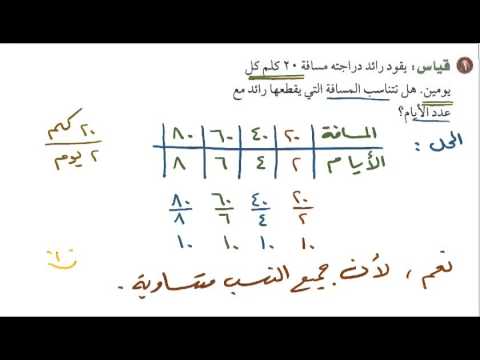 ١ قياس: يقود رائد دراجته مسافة ٢٠ كلم كل
يومين. هل تتناسب المسافة التي يقطعها رائد مع
عدد الأيام؟
الحل:
٢٠ كلم
٢ يوم
المسافة ٢٠ ٤٠ ٦٠ ٨٠
الأيام ٢ ٤ ٦ ٨
٢٠ ٤٠ ٦٠ ٨٠
٢ ٤ ٦ ٨
١٠ ١٠ ١٠ ١٠
نعم، لأن جميع النسب متساوية.